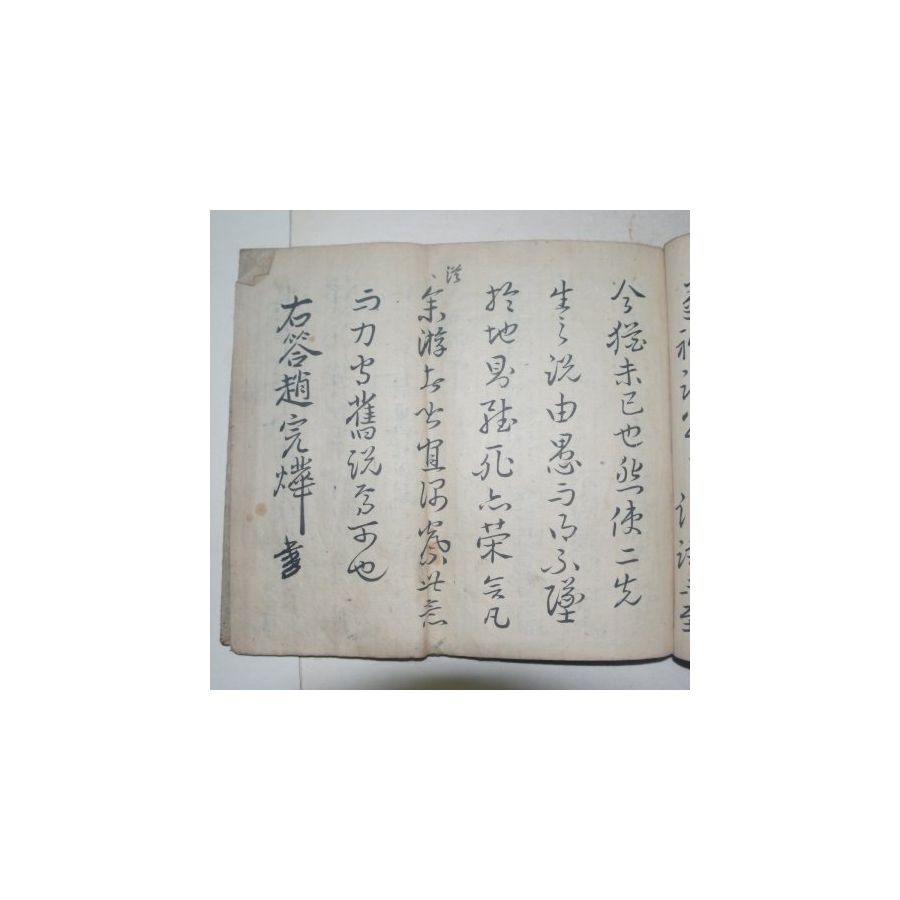 今猶未已也然使二先
生之說由愚而得不墜
於地則雖死亦榮矣凡
從余游者皆宜深察此意
而力守舊說爲可也
右答趙完燁書